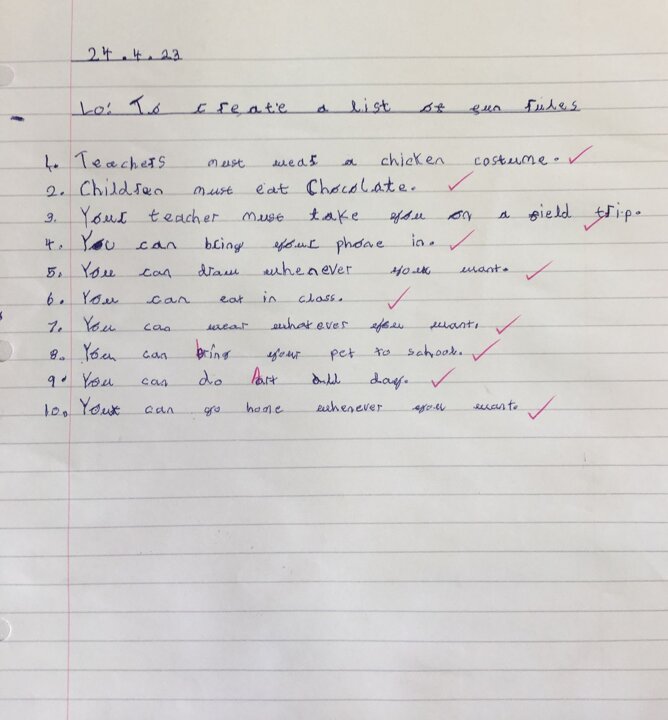 24.4.23
Lo: To create a list of fun rules
1. Teachers must wear a chicken costume.
2. Children must eat Chocolate.
3. Your teacher must take you on a field trip.
4. You can bring your phone in.
5. You can draw whenever you want.
6. You can eat in class.
7. You can wear whatever you want.
8. You can bring your pet to school.
9. You can do Art all day.
10. You can go home whenever you want.